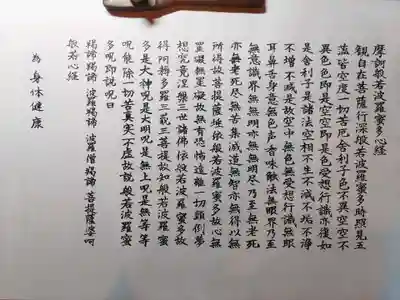 摩訶般若波羅蜜多心経
観自在菩薩行深般若波羅蜜多時照見五
蘊皆空度一切苦厄舎利子色不異空空不
異色色即是空空即是色受想行識亦復如
是舎利子是諸法空相不生不滅不垢不浄
不増不減是故空中無色無受想行識無眼
耳鼻舌身意無色声香味触法無眼界乃至
無意識界無無明亦無無明尽乃至無老死
亦無老死尽無苦集滅道無智亦無得以無
所得故菩提薩埵依般若波羅蜜多故心無
罣礙無罣礙故無有恐怖遠離一切顛倒夢
想究竟涅槃三世諸佛依般若波羅蜜多故
得阿耨多羅三藐三菩提故知般若波羅蜜
多是大神呪是大明呪是無上呪是無等等
呪能除一切苦真実不虚故説般若波羅蜜
多呪即説呪曰
羯諦羯諦 波羅羯諦 波羅僧羯諦 菩提薩婆訶
般若心経
為身体健康